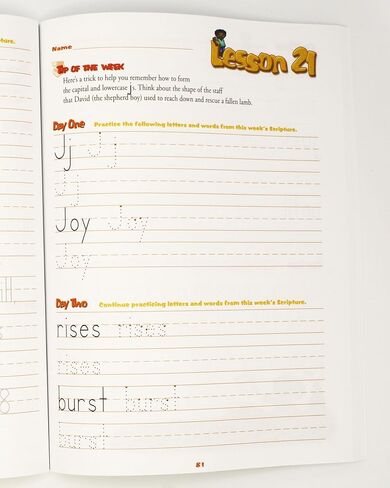 ture.
Name
Lesson 21
Tip of the Week
Here's a trick to help you remember how to form
the capital and lowercase Js. Think about the shape of the staff
that David (the shepherd boy) used to reach down and rescue a fallen lamb.
Day One Practice the following letters and words from this week's Scripture.
Jj Jj
Jj
Joy Joy
Joy
Day Two Continue practicing letters and words from this week's Scripture.
rises rises
rises
burst burst
8 burst
51